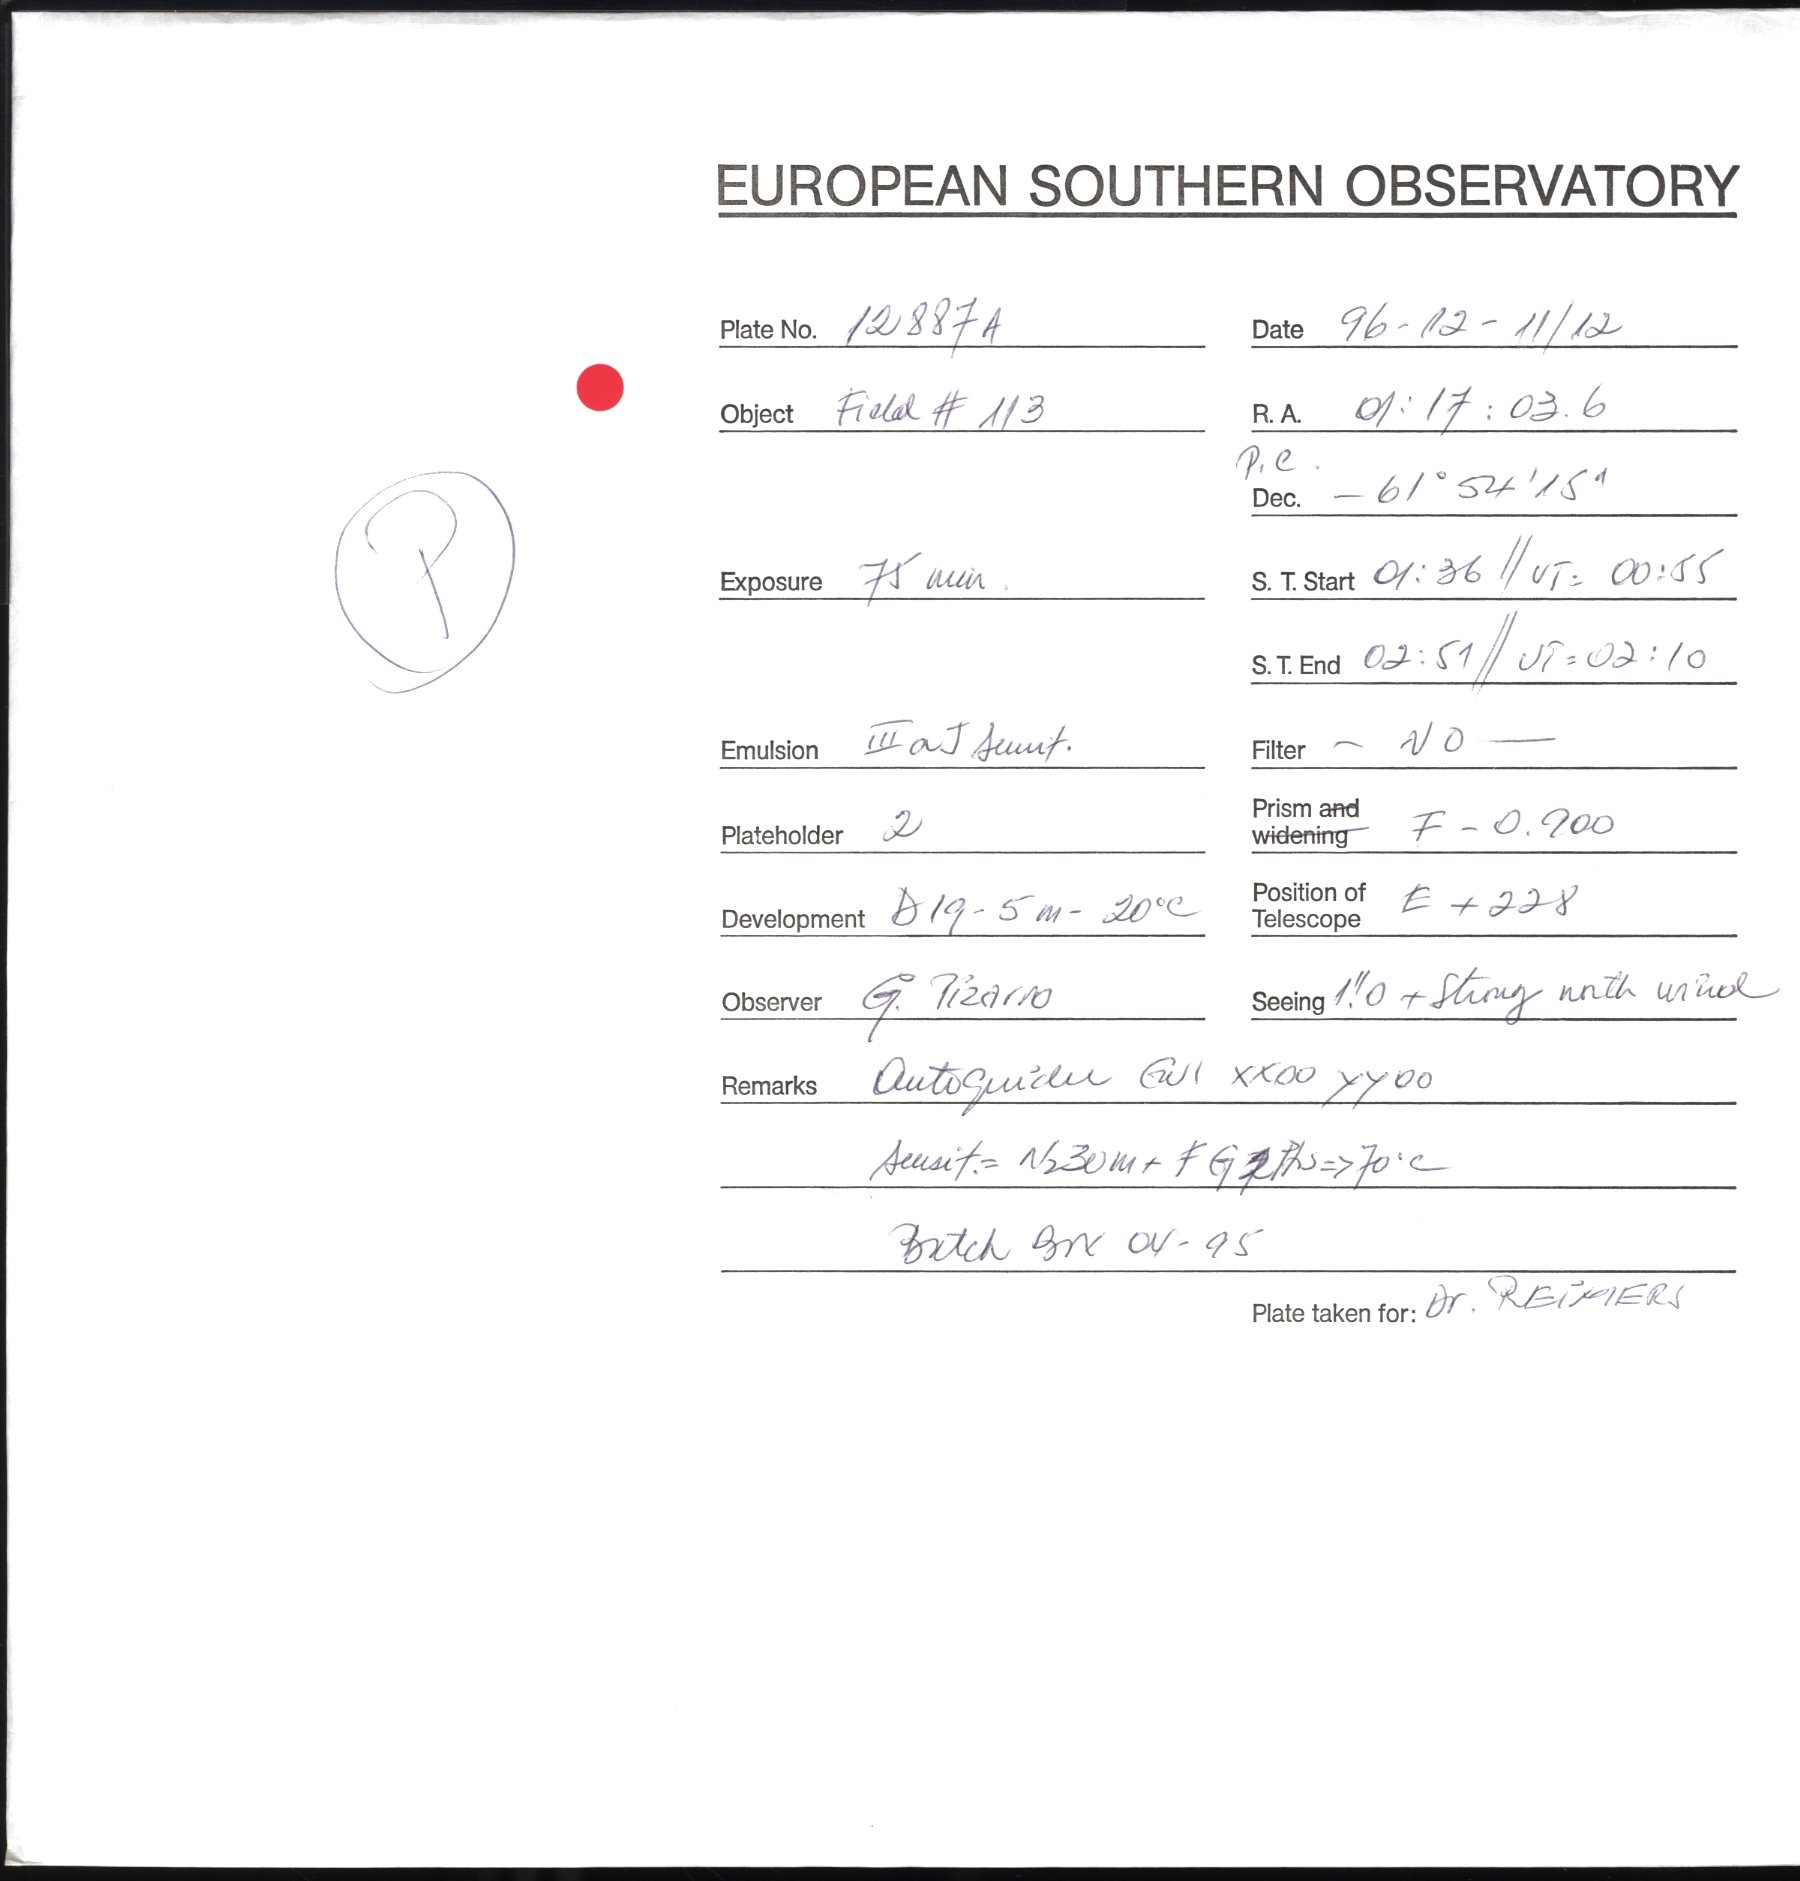 EUROPEAN SOUTHERN OBSERVATORY
Plate No. 12887A Date 96-12-11/12
Object Field # 113 R. A. 01:17:03.6
P.C.
Dec. -61° 54' 15"
P
Exposure 75 min. S. T. Start 01:36 // UT= 00:55
S. T. End 02:51 // UT=02:10
Emulsion IIIaJ sensit. Filter - NO -
Plateholder 2 Prism and widening F - 0.900
Development D19-5m-20°C Position of Telescope E +228
Observer G. Pizarro Seeing 1".0 + Strong north wind
Remarks Autoguider GW1 XX00 YY00
Sensit.= N230m+ FG 2hs=>70°C
Batch Box 04-95
Plate taken for: Dr. REIMERS